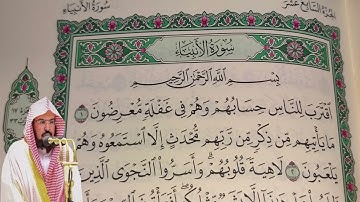 الجزء السابع عشر
سورة الأنبياء
سُورَةُ الأَنبِيَاءِ
بِسْمِ ٱللَّهِ ٱلرَّحْمَٰنِ ٱلرَّحِيمِ
ٱقْتَرَبَ لِلنَّاسِ حِسَابُهُمْ وَهُمْ فِي غَفْلَةٍ مُّعْرِضُونَ ١
مَا يَأْتِيهِم مِّن ذِكْرٍ مِّن رَّبِّهِم مُّحْدَثٍ إِلَّا ٱسْتَمَعُوهُ وَهُمْ
يَلْعَبُونَ ٢ لَاهِيَةً قُلُوبُهُمْ وَأَسَرُّوا۟ ٱلنَّجْوَى ٱلَّذِينَ